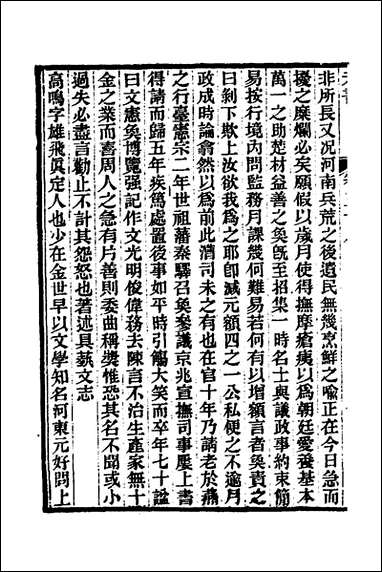 非所長又况河南兵荒之後遺民無幾烹鮮之喻正在今日急而
擾之糜爛必矣願假以歲月使得撫摩瘡痍以爲朝廷愛養基本
萬一之助楚材益善之奐旣至招集一時名士與議政事約束簡
易按行境內問監務月課幾何難易若何有以增額言者奐責之
曰剝下欺上汝欲我爲之耶卽減元額四之一公私便之不逾月
政成時論翕然以爲前此漕司未之有也在官十年乃請老於燕
之行臺憲宗二年世祖藩秦驛召奐參議京兆宣撫司事屢上書
得請而歸五年疾篤處置後事如平時引觴大笑而卒年七十諡
曰文憲奐博覽强记作文光明俊偉務去陳言不治生產家無十
金之業而喜周人之急有片善則委曲稱奬惟恐其名不聞或小
過失必盡言勸止不計其怨怒也著述具藝文志
高鳴字雄飛眞定人也少在金世早以文學知名河東元好問上